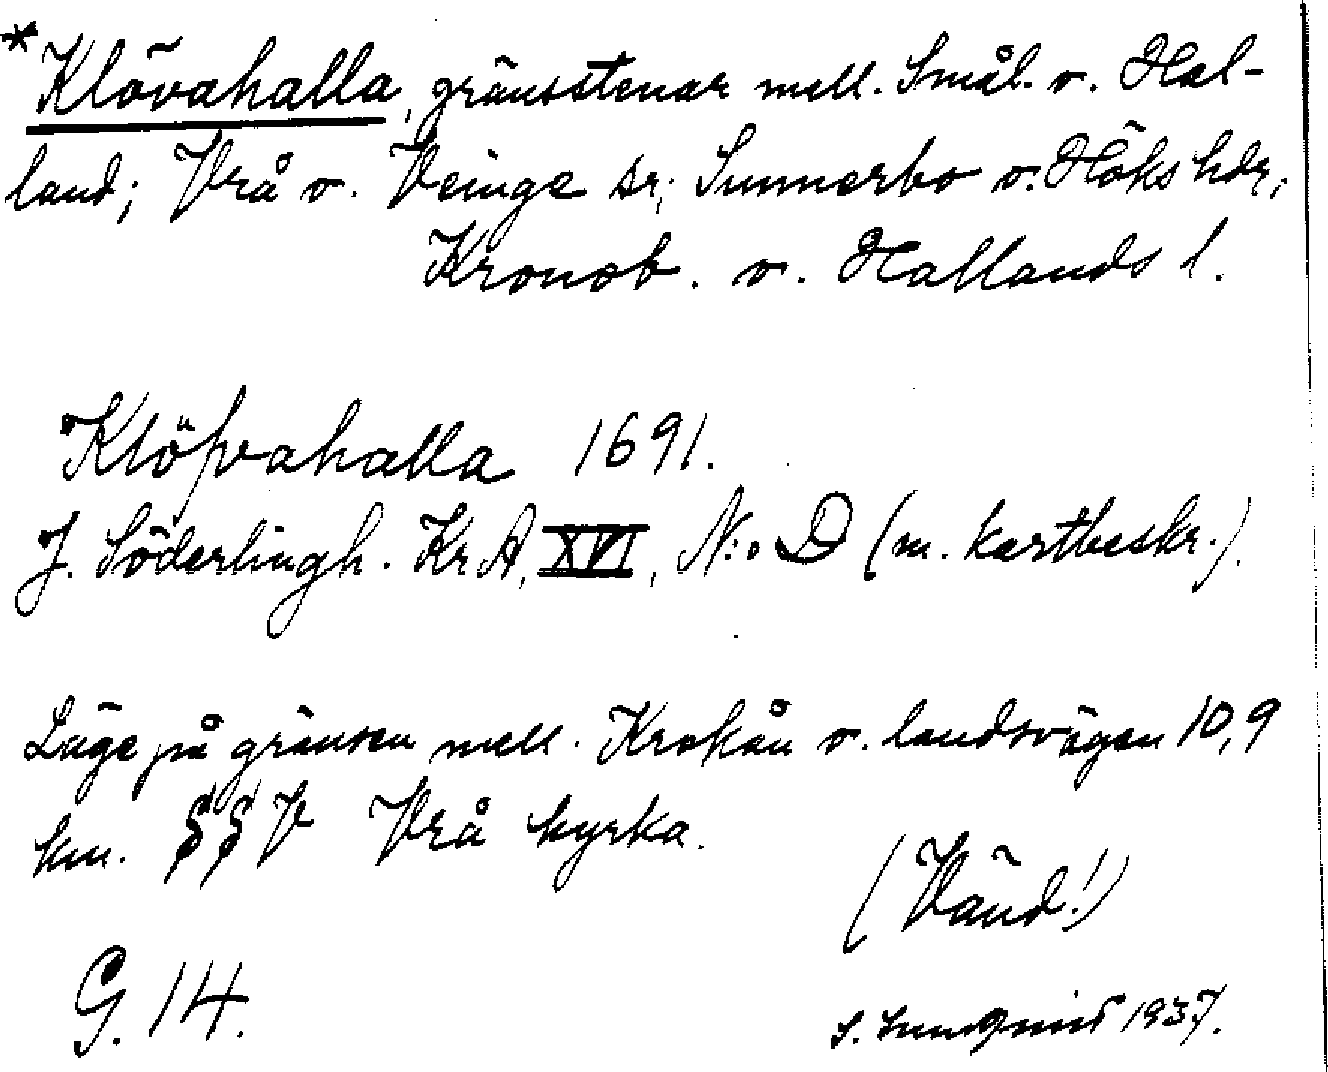 *Klövahalla, gränsstenar mell. Smål. o. Hal-
land; Vrå o. Veinge sr; Sunnerbo o. Höks hdr,
Kronob. o. Hallands l.
Klöfvahalla 1691.
J. Söderlingh. Kr A, XVI, N:o D (m. kartbeskr.).
Läge på gränsen mell. Krokån o. landsvägen 10,9
km. SSV Vrå kyrka.
(Vänd!)
G. 14.
S. Sunnqvist 1937.